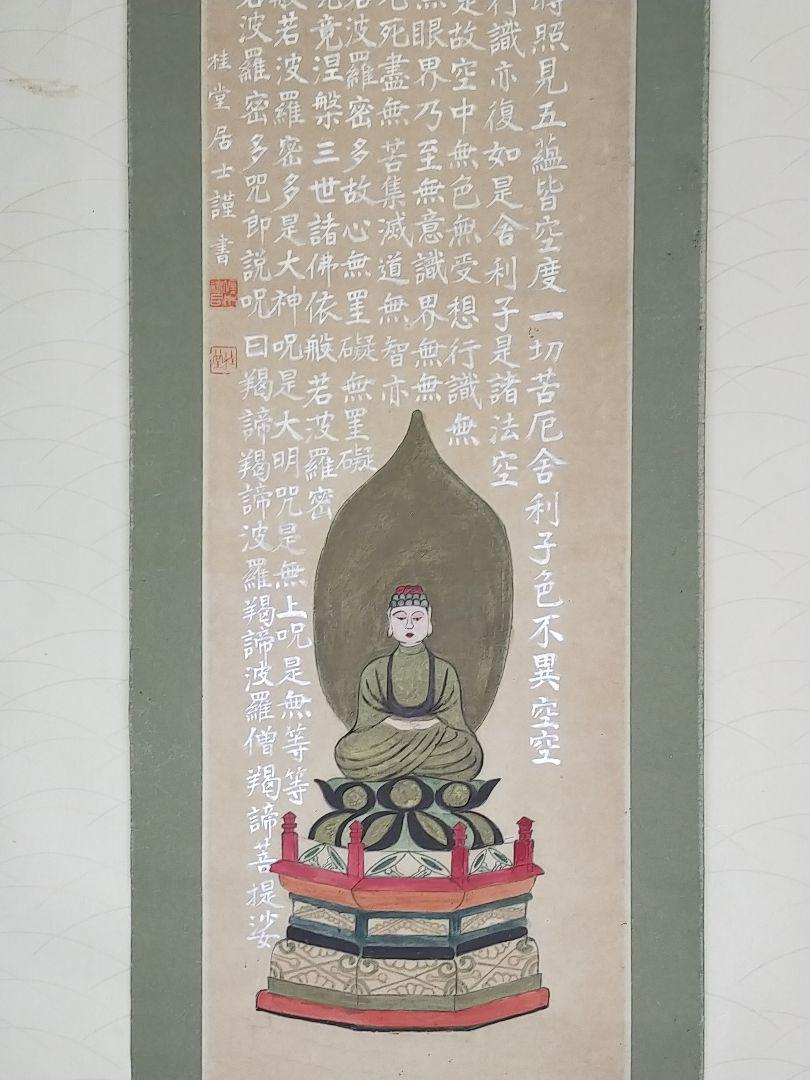 時照見五蘊皆空度一切苦厄舍利子色不異空空
行識亦復如是舍利子是諸法空
是故空中無色無受想行識無
無眼界乃至無意識界無無
老死盡無苦集滅道無智亦
若波羅密多故心無罣礙無罣礙
究竟涅槃三世諸佛依般若波羅密
般若波羅密多是大神呪是大明呪是無上呪是無等等
若波羅密多呪即說呪曰羯諦羯諦波羅羯諦波羅僧羯諦菩提娑
桂堂居士謹書
桂堂